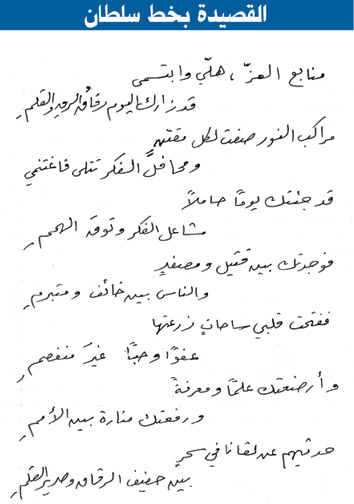 القصيدة بخط سلطان
منابع العزّ، هلّي وابتسمي
قد زارك اليوم رفاق الحرف والقلمِ
مراكب النور صنعت لكل مقتنٍ
ومحافلُ الفكر تتلى فاغتنمي
قد جئتك يوماً حاملاً
مشاعل الفكر وتوق الهممِ
فوجدتك بين قتيل ومصفدٍ
والناس بين خائف ومتبرمِ
ففتحت قلبي ساحاتٍ زرعتها
عفوًا وحبًّا غيرَ منفصمِ
وأرضعتك علمًا ومعرفةً
ورفعتك منارة بين الأممِ
حدثيهم عن لقانا في سحرٍ
بين حفيف الرقاق وصرير القلمِ